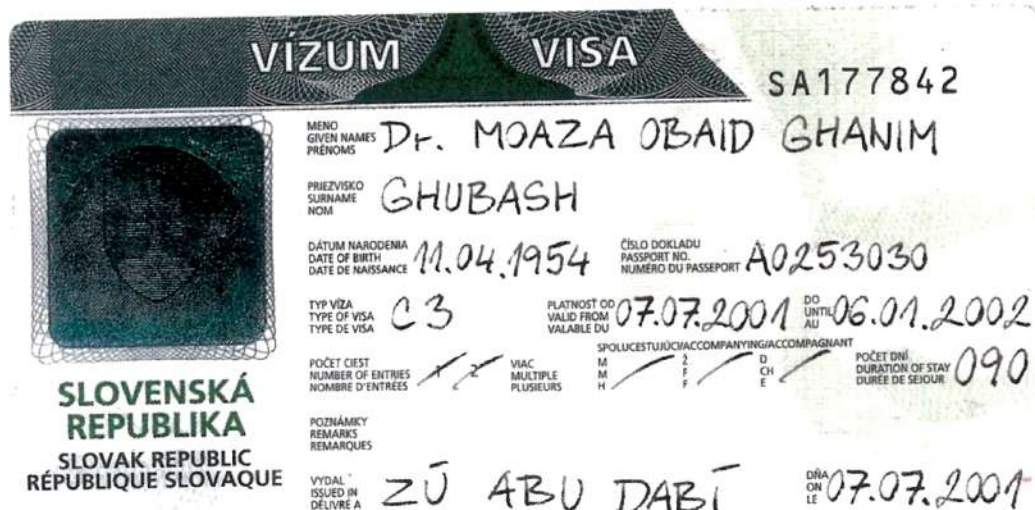 VÍZUM VISA
SA177842
MENO
GIVEN NAMES
PRÉNOMS
Dr. MOAZA OBAID GHANIM
PRIEZVISKO
SURNAME
NOM
GHUBASH
DÁTUM NARODENIA
DATE OF BIRTH
DATE DE NAISSANCE
11.04.1954
ČÍSLO DOKLADU
PASSPORT NO.
NUMÉRO DU PASSEPORT
A0253030
TYP VÍZA
TYPE OF VISA
TYPE DE VISA
C3
PLATNOSŤ OD
VALID FROM
VALABLE DU
07.07.2001
DO
UNTIL
AU
06.01.2002
POČET CIEST
NUMBER OF ENTRIES
NOMBRE D'ENTRÉES
1 2
VIAC
MULTIPLE
PLUSIEURS
SPOLUCESTUJÚCI/ACCOMPANYING/ACCOMPAGNANT
M
M
H
Ž
F
F
D
CH
E
POČET DNÍ
DURATION OF STAY
DURÉE DE SEJOUR
090
SLOVENSKÁ
REPUBLIKA
SLOVAK REPUBLIC
RÉPUBLIQUE SLOVAQUE
POZNÁMKY
REMARKS
REMARQUES
VYDAL
ISSUED IN
DÉLIVRÉ A
ZÚ ABU DABÍ
DŇA
ON
LE
07.07.2001